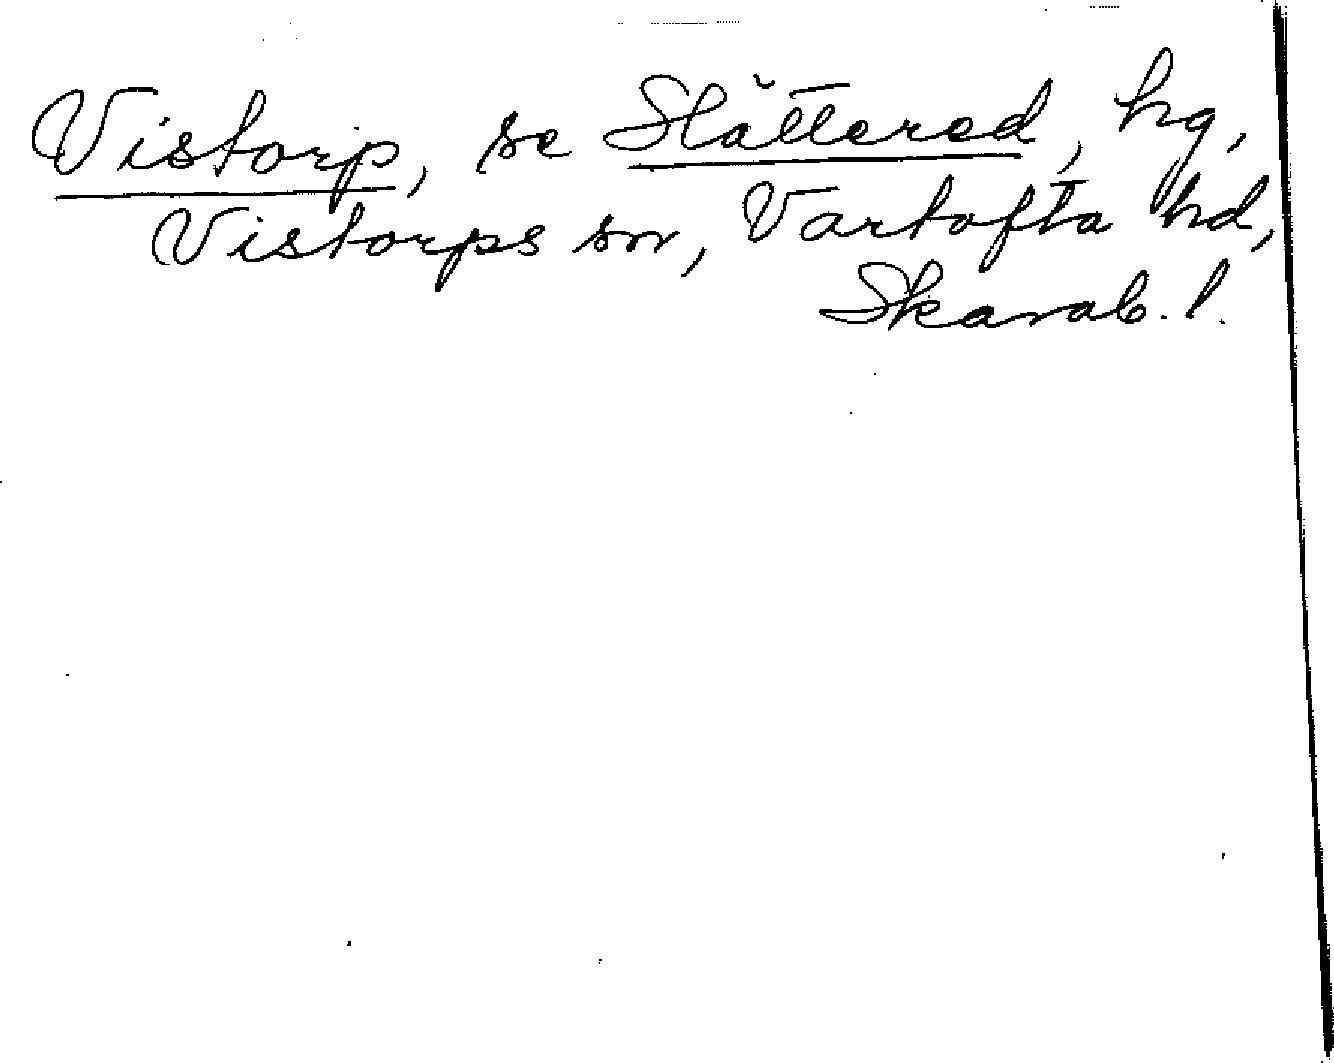 Vistorp, se Slättered, hg,
Vistorps sn, Vartofta hd,
Skarab. l.